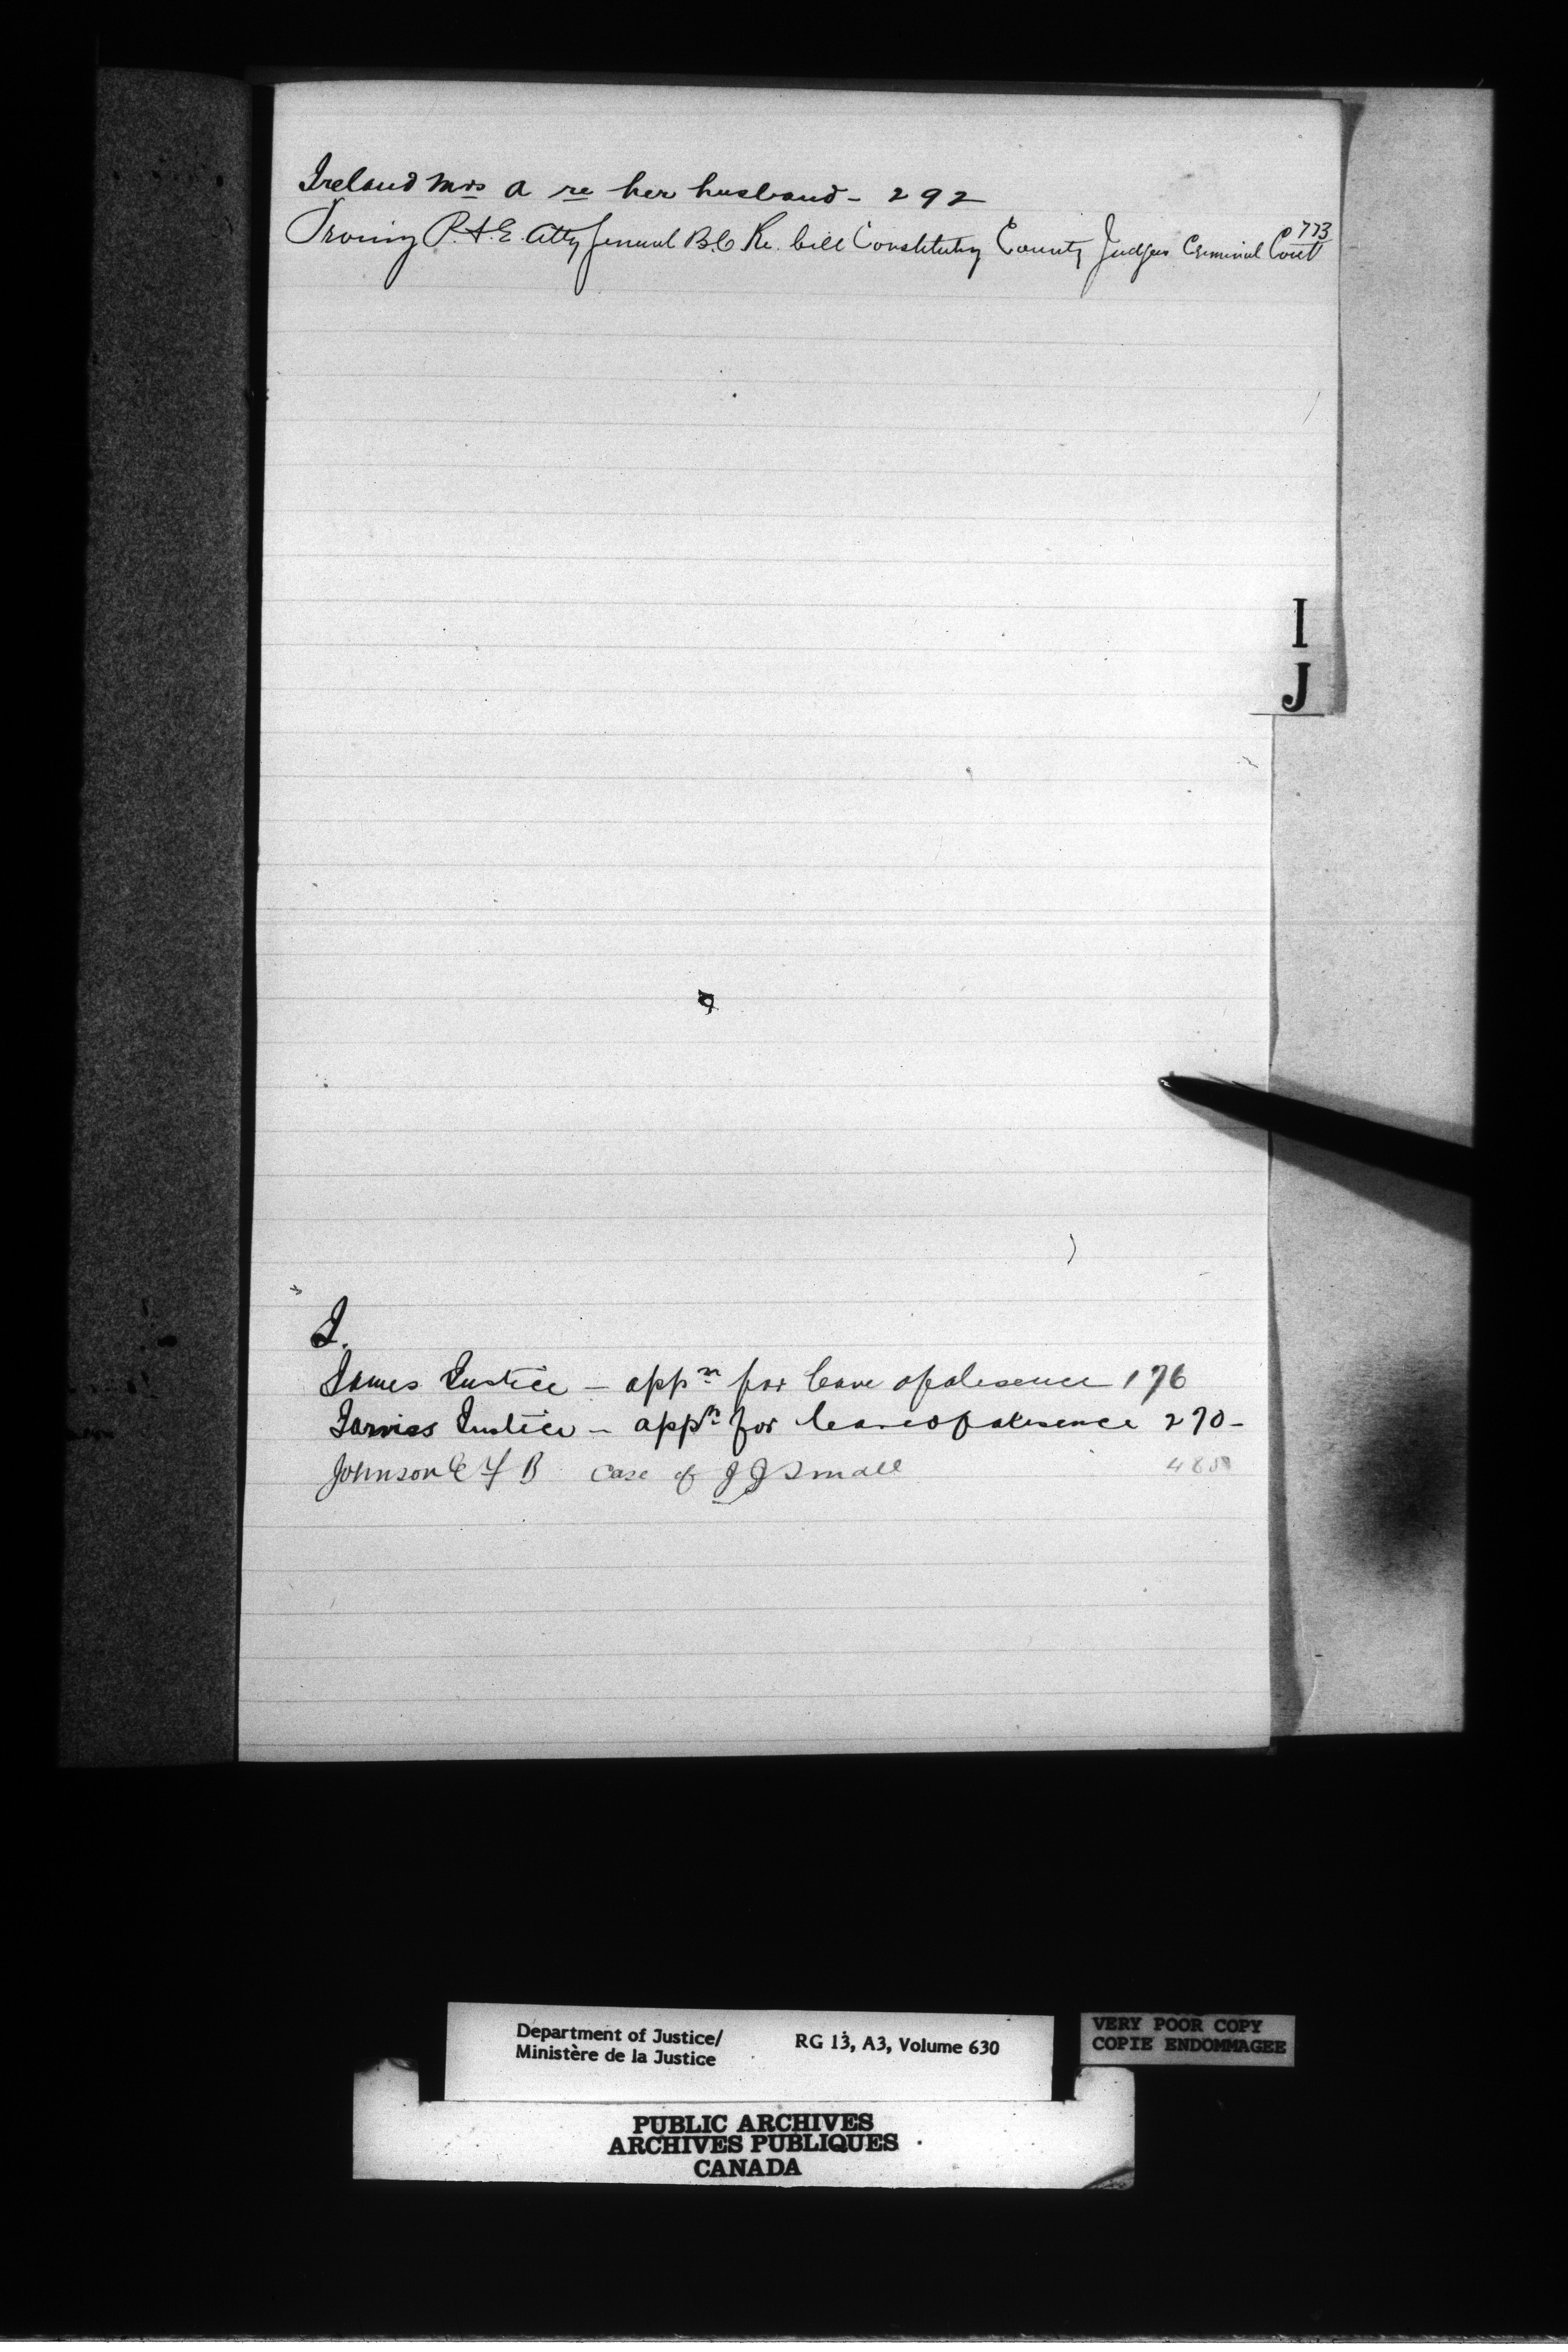 Ireland Mrs A re her husband - 292
Irving P. Æ. Atty General B.C Re. bill Constituting County Judges Criminal Court 773
I
J
J.
James Justice - appn for leave of absence 176
Jarvies Justice - appn for leave of absence 270 -
Johnson E F B Case of J J Small
Department of Justice/
Ministère de la Justice
RG 13, A3, Volume 630
VERY POOR COPY
COPIE ENDOMMAGEE
PUBLIC ARCHIVES
ARCHIVES PUBLIQUES
CANADA